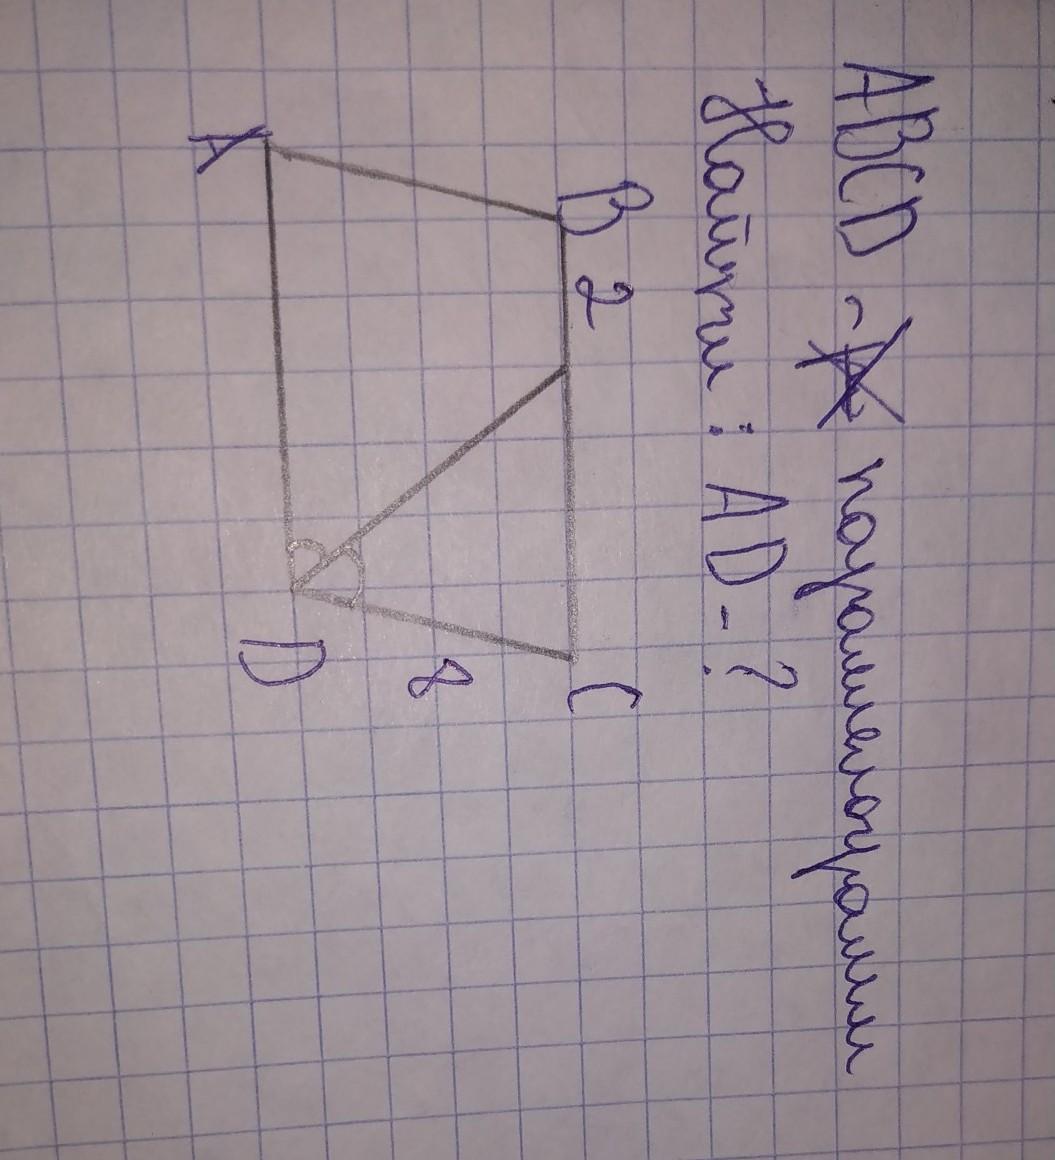 ABCD - параллелограмм
Найти: AD-?
B 2 C
8
A D